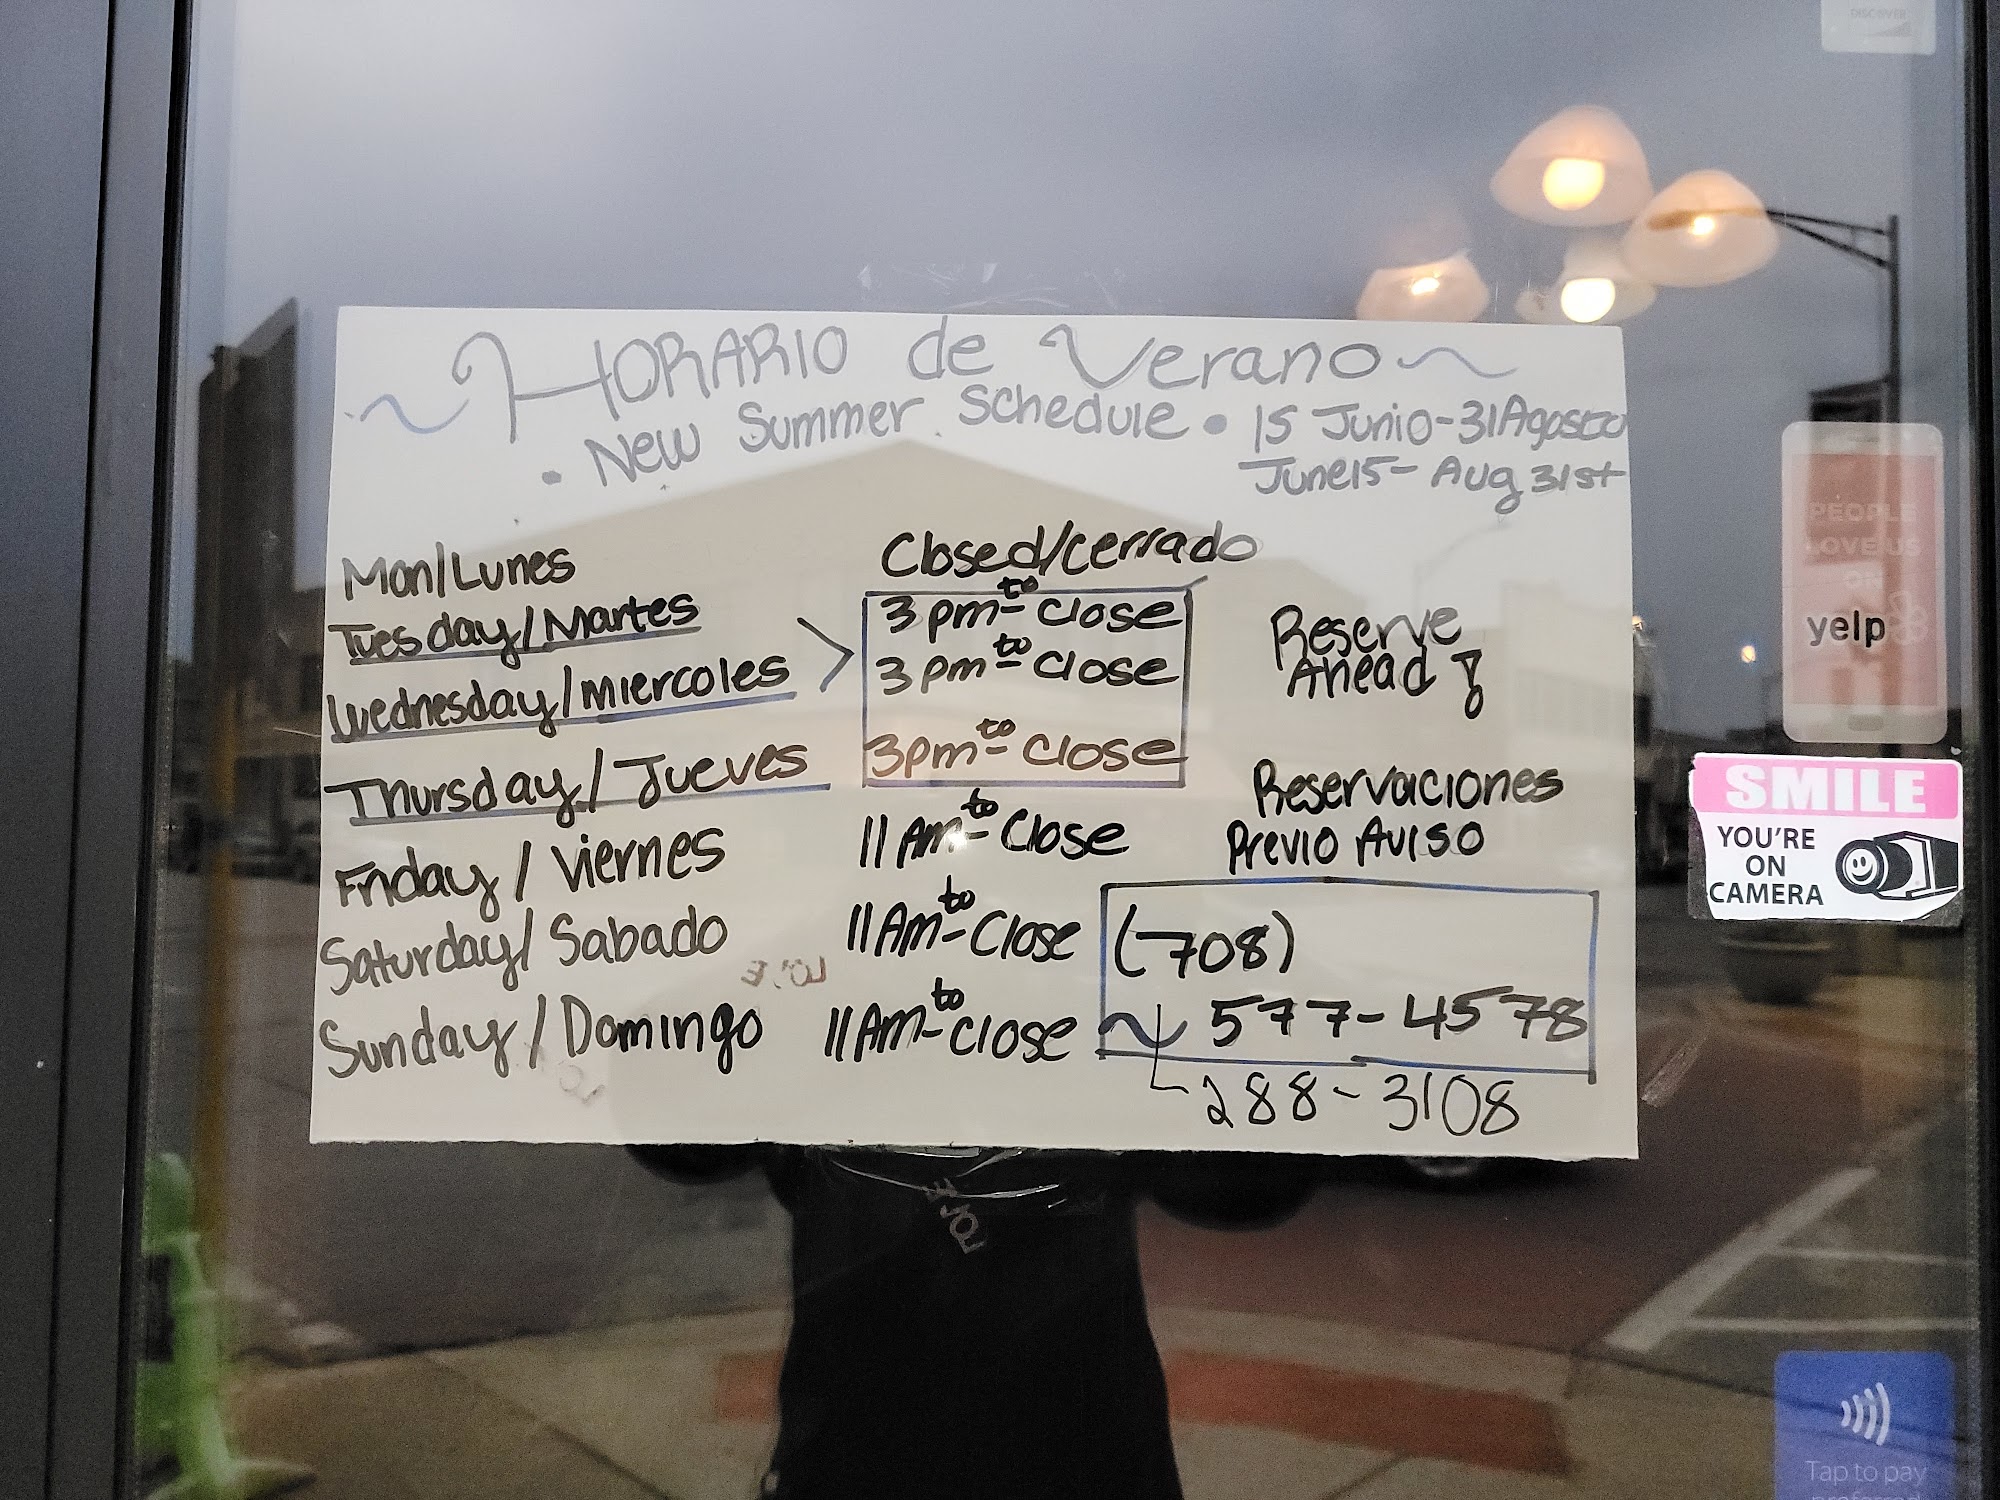 DISCOVER
~ HORARIO de Verano ~
• New Summer Schedule • 15 Junio-31Agosto
June15- Aug 31st
Mon/Lunes Closed/cerrado
Tuesday/Martes 3pm to - close
Wednesday/miercoles > 3pm to - close
Thursday/Jueves 3pm to - close
Friday/Viernes 11Am to - Close
Saturday/Sabado 11Am to - Close
Sunday/Domingo 11Am to - close
Reserve
Ahead !
Reservaciones
Previo Aviso
(708)
~ 577-4578
288-3108
PEOPLE
LOVE US
ON
yelp
SMILE
YOU'RE
ON
CAMERA
Tap to pay